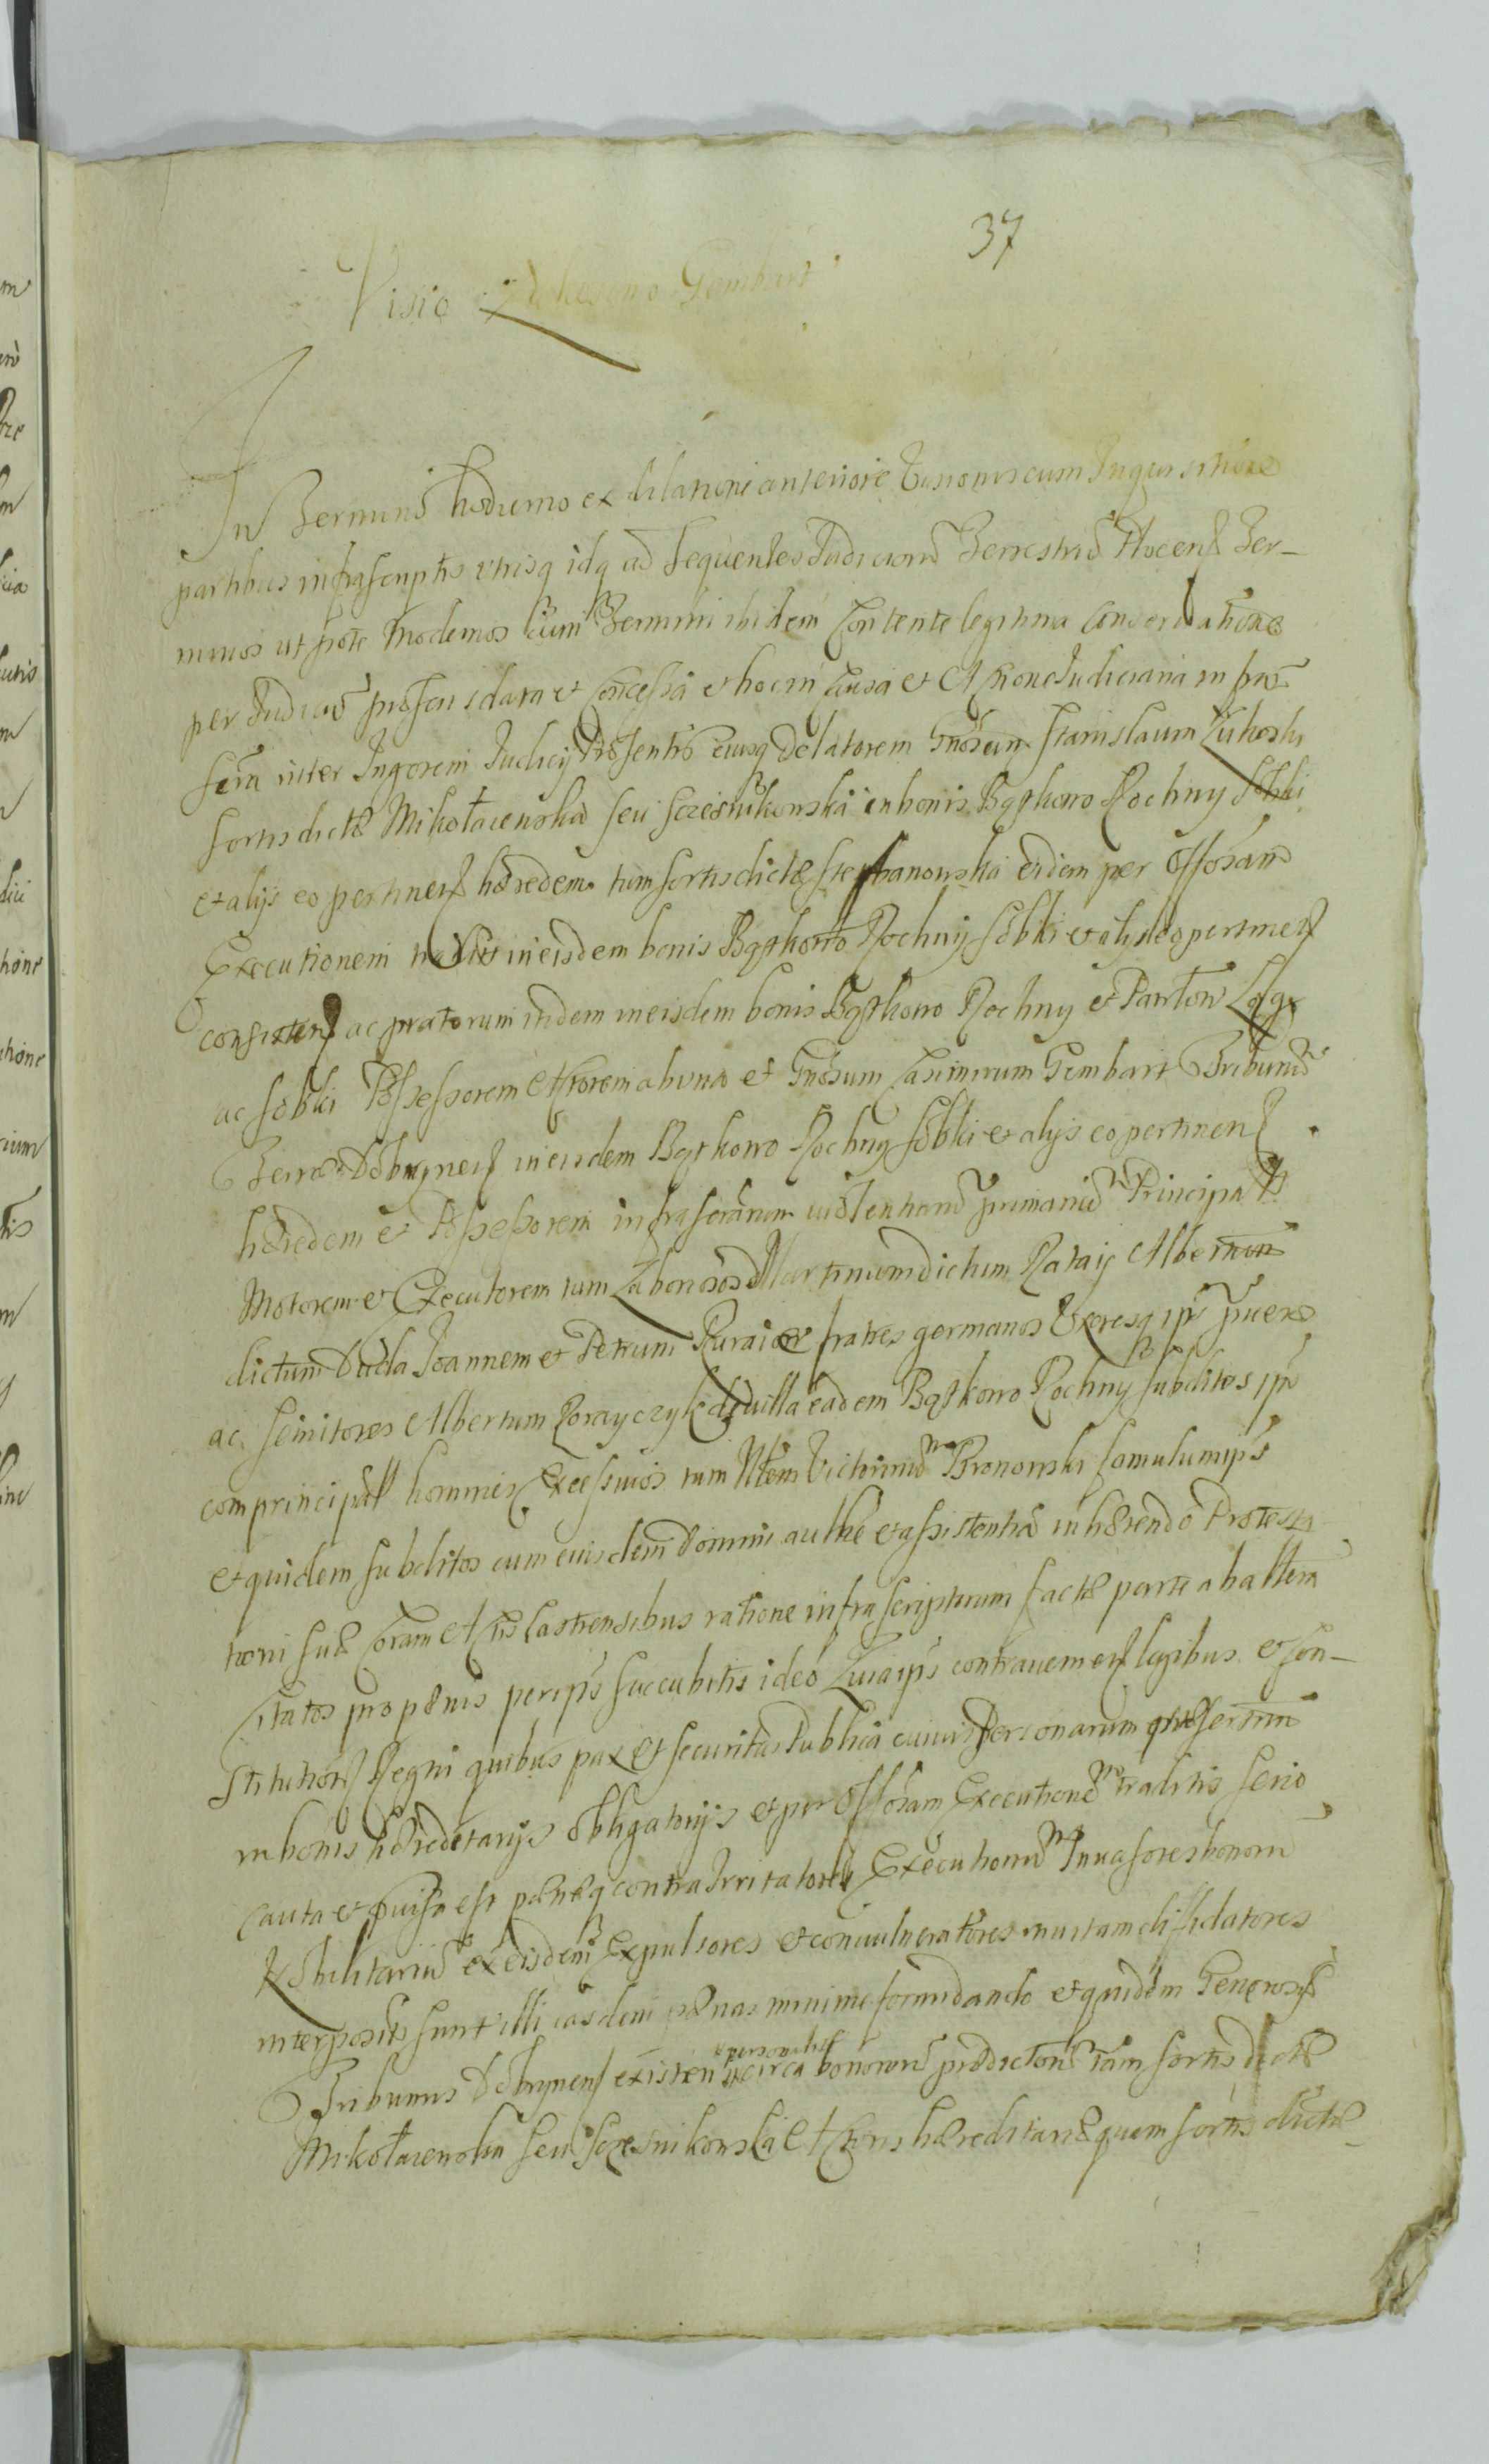 37
Visio Gembart
In Termino hodierno ex dilatione anteriore Visionis cum Inquisitione
partibus infrascriptis vtrisq idq ad sequentes Judicioru Terrestriu Plocens Ter-
minos ut pote modernos cum Termini ibidem Contente legitima conservatione
per Judiciu pñs data et Concessa et hoc in Causa et Actione Judiciaria infra
scra inter Ingorem Judicij Præsentis eiusq Delatorem Gnosum Stanislaum Lukoski
sortis dictæ Mikołaiewska seu Szcesnikowska in bonis Bątkowo Rochny Sobki
et alijs eo pertinen hæredem tum sortis dictæ Stephanowska eidem per Offosam
Executionem traditæ in eisdem bonis Bątkowo Rochny Sobki et alijs eo pertinen
consisten ac pratorum itidem in eisdem bonis Bątkowo Rochny et Pawłow
ac Sobki Possessorem Actorem ab vna et Gnosum Casimirum Gembart Tribunu
Terræ Dobrynen in eisdem Bątkowo Rochny Sobki et alijs eo pertinen
hæredem et Possessorem infrascrarum violentiaru primariu Principale
Motorem et Executorem tum Laboriosos Martinum dictum Rataij Albertum
dictum Duda Joannem et Petrum fratres germanos Vxoresq ips pueros
ac seruitores Albertum de villa eadem Bątkowo Rochny subditos ips
comprincipales homines Excessiuos tum Nlem Victorinu Bronowski famulum ips
et quidem subditos cum eiusdem Domini authe et assistentia inhærendo Protesta
tioni suæ Coram Actis Castrensibus ratione infrascriptorum factæ parte ab altera
Citatos pro pænis per ips succubitis ideo Quia ips contrauenien legibus et Con-
stitution Regni quibus pax et securitas Publica cuiuis Personarum præsertim
in bonis hæreditarijs obligatorijs et per Offosam Executione traditis serio
Cauta et puisa est pænæq contra Irritatores Executionu Inuasores bonoru
Nobilitariu ex eisdem Expulsores et conuulneratores diffidatores
interpositæ sunt illi easdem pænas minime formidando et quidem Generosus
Tribunus Dobrynen existen personaliter circa bonoru prædictoru tam sortis dictæ
Mikołaiewska seu Szcesnikowska Actoris hæreditariæ quam sortis dictæ